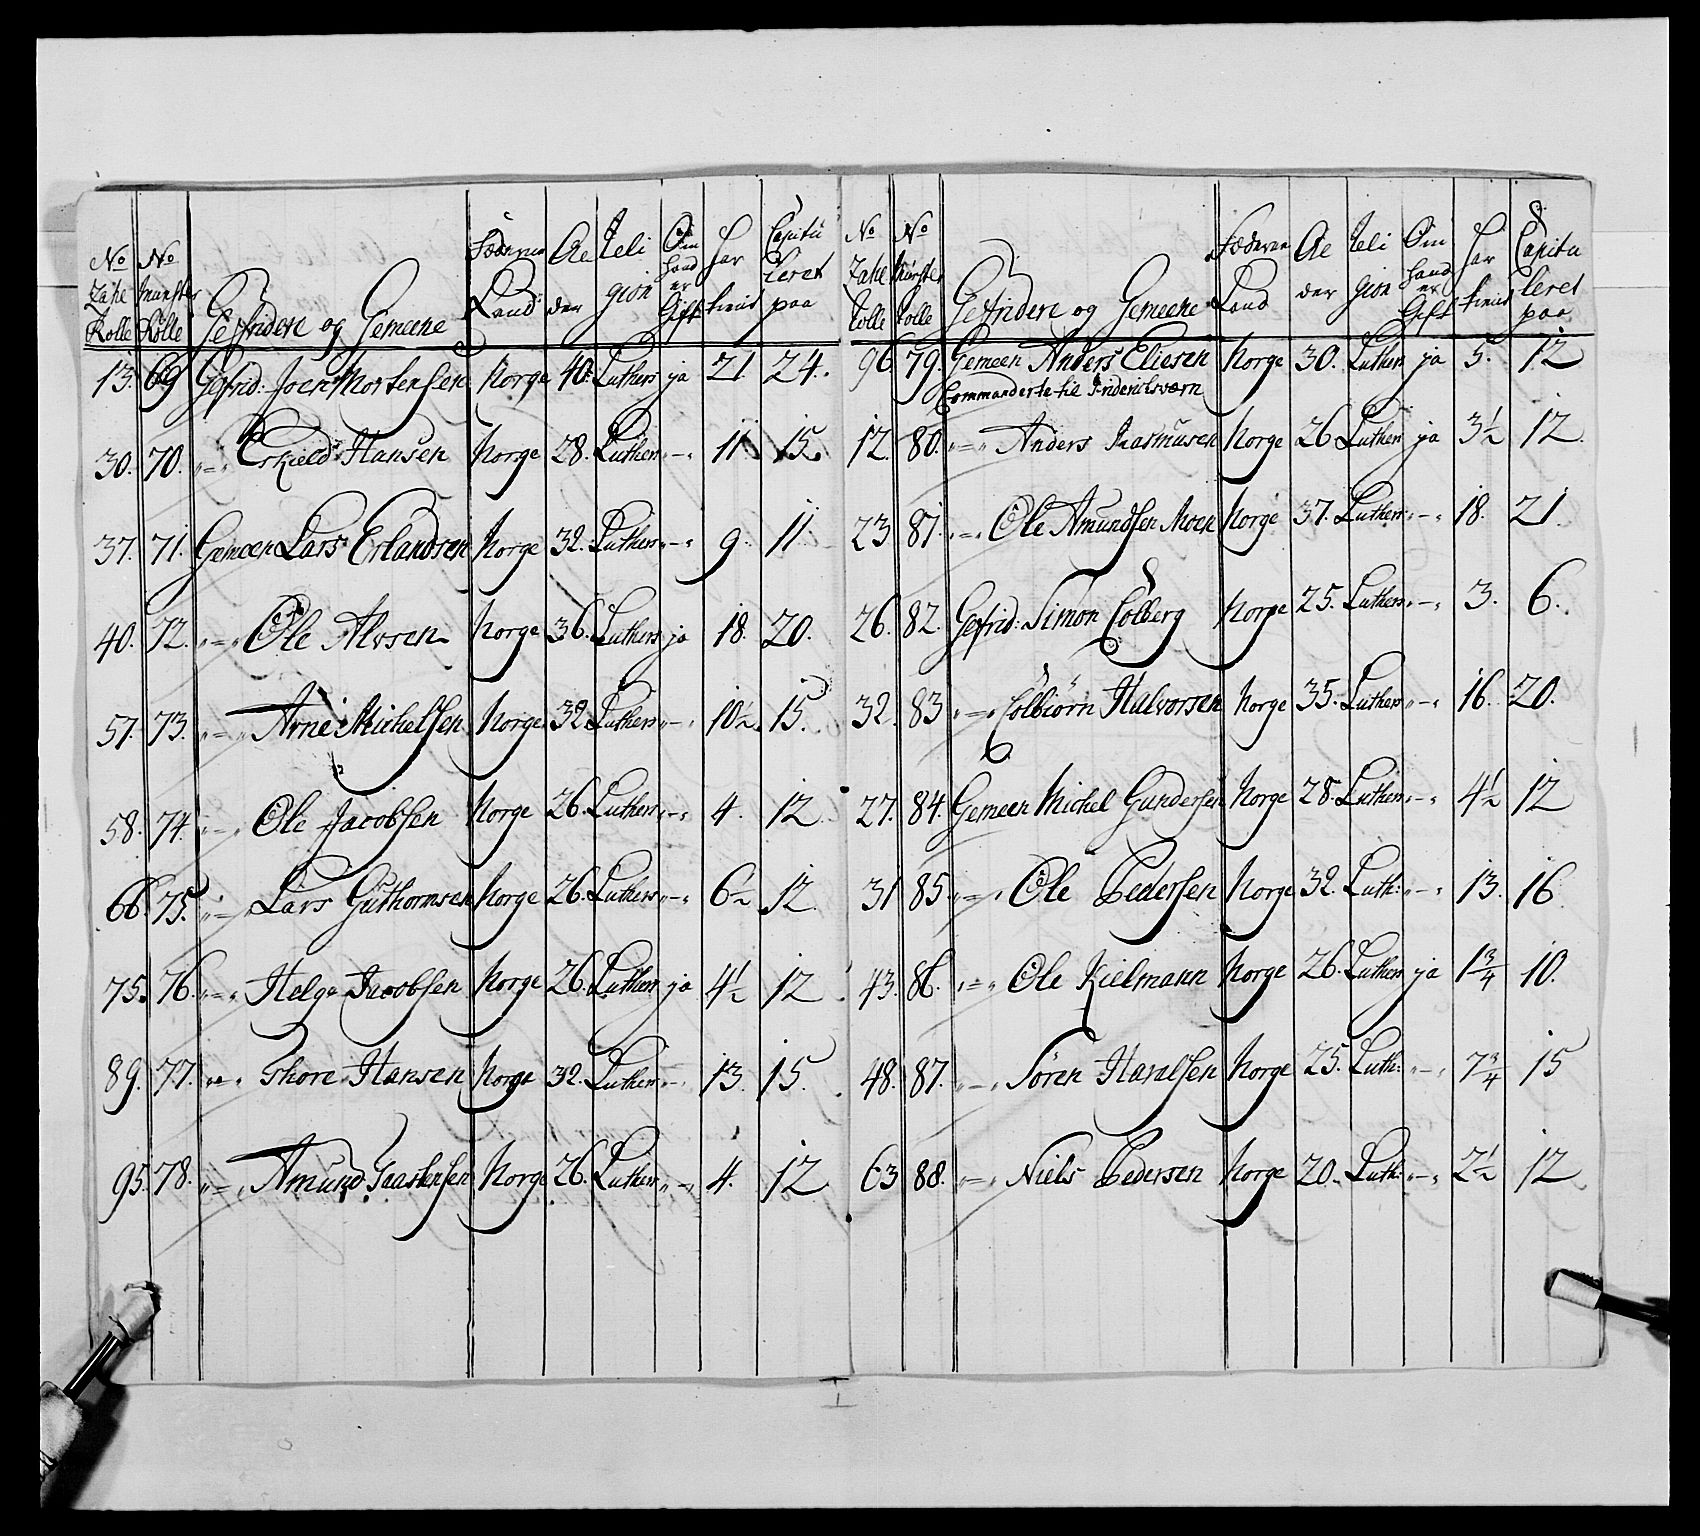 No Zahl Rolle | No Munster Rolle | Gefridere og Gemeene | Fæderne Land | Alder | Religion | Om hand er Gift | har tient | Capituleret paa
13. 69 Gefrid: Joen Mortensen Norge 40. Luthers ja 21. 24.
30. 70. „=„ Eskield Hansen Norge 28. Luthers „-„ 11. 15.
37. 71. Gemeen Lars Erlandsen Norge 32. Luthers „-„ 9. 11.
40. 72. „=„ Ole Alvsen Norge 36. Luthers ja 18. 20.
57. 73. „=„ Arne Michelsen Norge 32. Luthers „-„ 10½. 15.
58. 74. „=„ Ole Jacobsen Norge 26. Luthers „-„ 4. 12.
66. 75. „=„ Lars Guthormsen Norge 26. Luthers „-„ 6½ 12.
75. 76. „=„ Helge Jacobsen Norge 26. Luthers ja 4½ 12
89. 77. „=„ Thore Hansen Norge 32. Luthers „-„ 13. 15.
95. 78. „=„ Amund Norge 26. Luthers „-„ 4. 12
No Zahl Rolle | No Munster Rolle | Gefridere og Gemeene | Fæderne Land | Alder | Religion | Om hand er Gift | har tient | Capituleret paa
96 79. Gemeen Anders Eliesen Norge 30. Luthers ja 5. 12
Commanderte til Friderichsværn
12. 80. „=„ Anders Rasmusen Norge 26 Luthers ja 3½ 12.
23 81. „=„ Ole Amundsen Moen Norge 37. Luthers „-„ 18. 21.
26. 82. Gefrid: Simon Colberg Norge 25. Luthers „-„ 3. 6.
32. 83 „=„ Colbiörn Halvorsen Norge 35. Luthers „-„ 16. 20.
27. 84. Gemeen Michel Gundersen Norge 28. Luthers „-„ 4½ 12
31 85 „=„ Ole Pedersen Norge 32. Luth: „-„ 13. 16
43. 86. „=„ Ole Kielmann Norge 26. Luthers ja 1¾ 10.
48. 87. „=„ Sören Haralsen Norge 25. Luth: „-„ 7¾ 15
63 88. „=„ Niels Pedersen Norge 20. Luth: „-„ 2½ 12